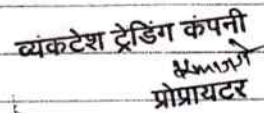 व्यंकटेश ट्रेडिंग कंपनी
प्रोप्रायटर